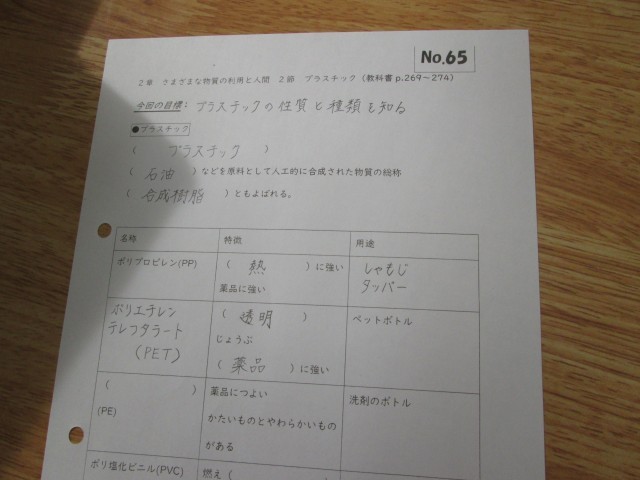 No.65
２章　さまざまな物質の利用と人間　２節　プラスチック（教科書p.269～274）
今回の目標： プラスチックの性質と種類を知る
●プラスチック
（ プラスチック ）
（ 石油 ）などを原料として人工的に合成された物質の総称
（ 合成樹脂 ）ともよばれる。
名称 特徴 用途
ポリプロピレン(PP) （ 熱 ）に強い しゃもじ
薬品に強い タッパー
ポリエチレン （ 透明 ） ペットボトル
テレフタラート じょうぶ
(PET) （ 薬品 ）に強い
（ ） 薬品につよい 洗剤のボトル
(PE) かたいものとやわらかいもの
がある
ポリ塩化ビニル(PVC) 燃え（